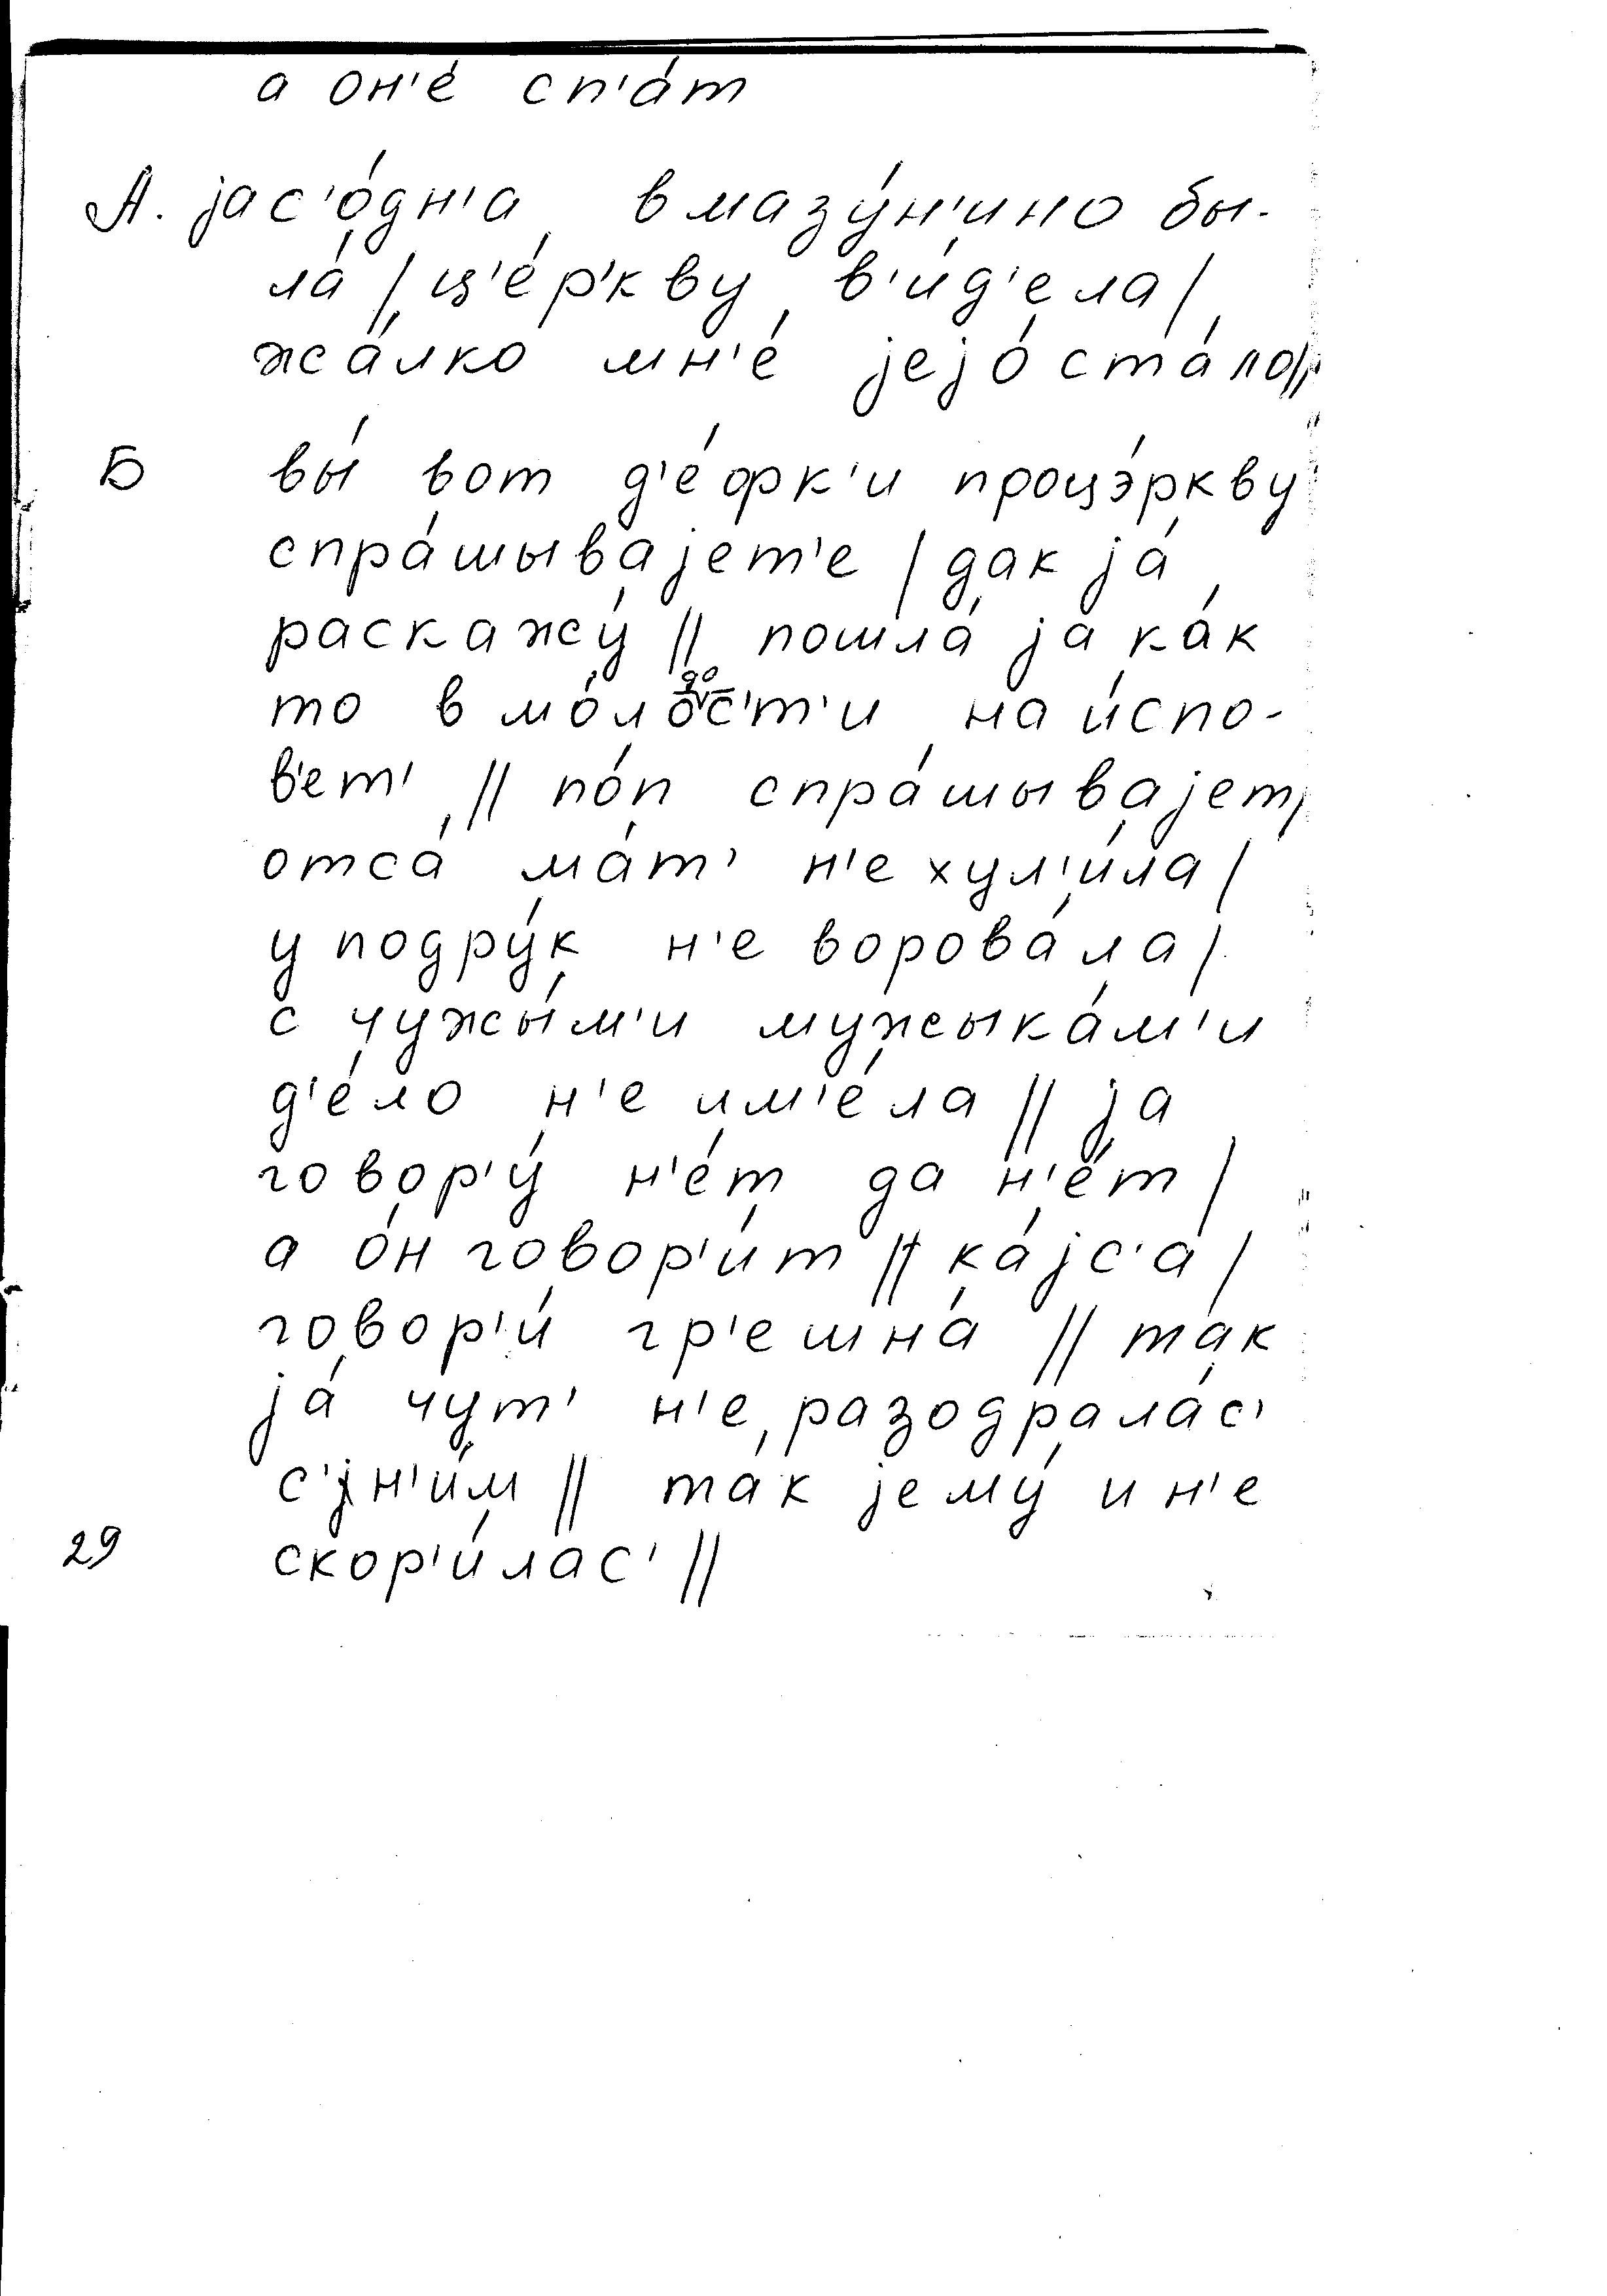 а он'е́ сп'а́т
А. jас'о́дн'а в мазу́н'ино бы-
ла́ / ц'е́р'кву в'и́д'ела /
жа́лко мн'е́ jejо́ ста́ло //
Б вы́ вот д'е́фк'и процэ́ркву
спра́шываjет'е / дак jа́
раскажу́ // пошла́ jа ка́к
то в мо́лодос'т'и на и́спо-
в'ет' // по́п спра́шываjет /
отса́ ма́т' н'е хул'и́ла /
у подру́к н'е ворова́ла /
с чужы́м'и мужыка́м'и
д'е́ло н'е им'е́ла // jа
говор'у́ н'е́т да н'е́т /
а о́н говор'и́т // ка́jс'а /
говор'и́ гр'ешна́ // так
jа́ чут' н'е разодрала́с'
с'jн'и́м // та́к jему́ и н'е
29 скор'и́лас' //